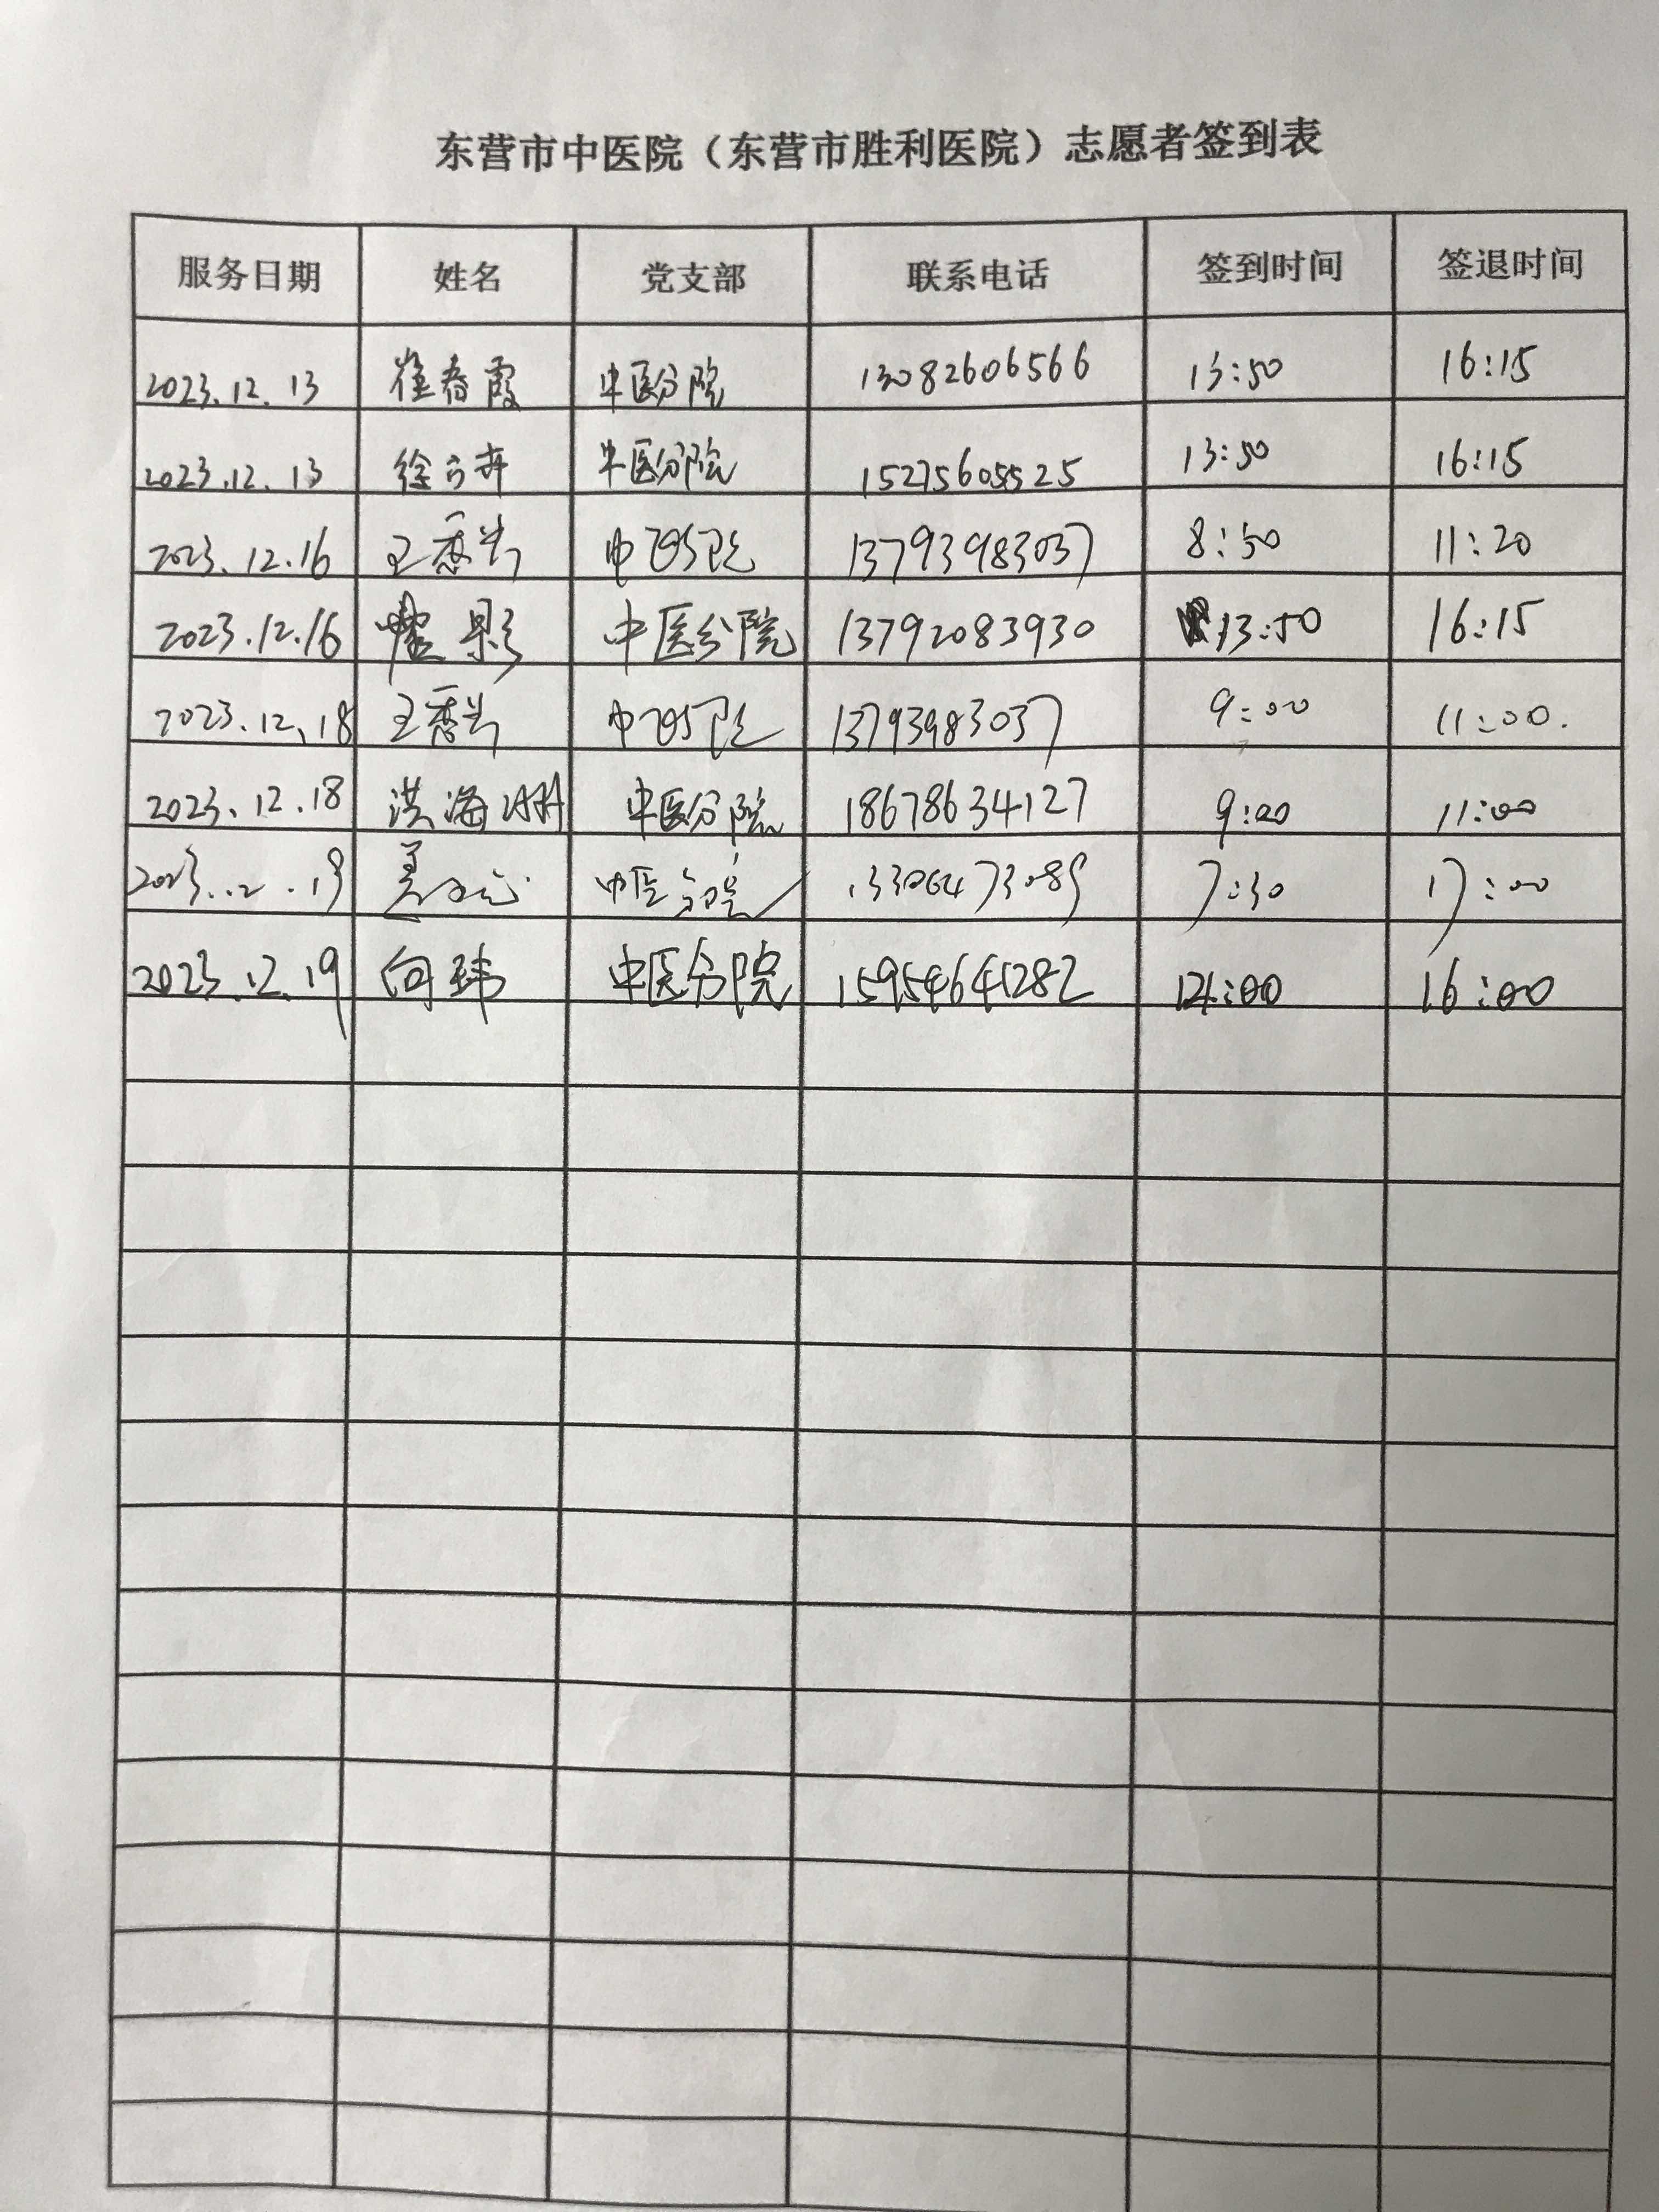 东营市中医院（东营市胜利医院）志愿者签到表
服务日期 姓名 党支部 联系电话 签到时间 签退时间
2023.12.13 崔春霞 中医分院 13082606566 13:50 16:15
2023.12.13 徐 中医分院 15275605525 13:50 16:15
2023.12.16 王 中医分院 13793983037 8:50 11:20
2023.12.16 影 中医分院 13792083930 13:50 16:15
2023.12.18 王 中医分院 13793983037 9:00 11:00.
2023.12.18 洪海 中医分院 18678634127 9:00 11:00
中医分院 7:30 17:00
2023.12.19 向玮 中医分院 15954641282 16:00